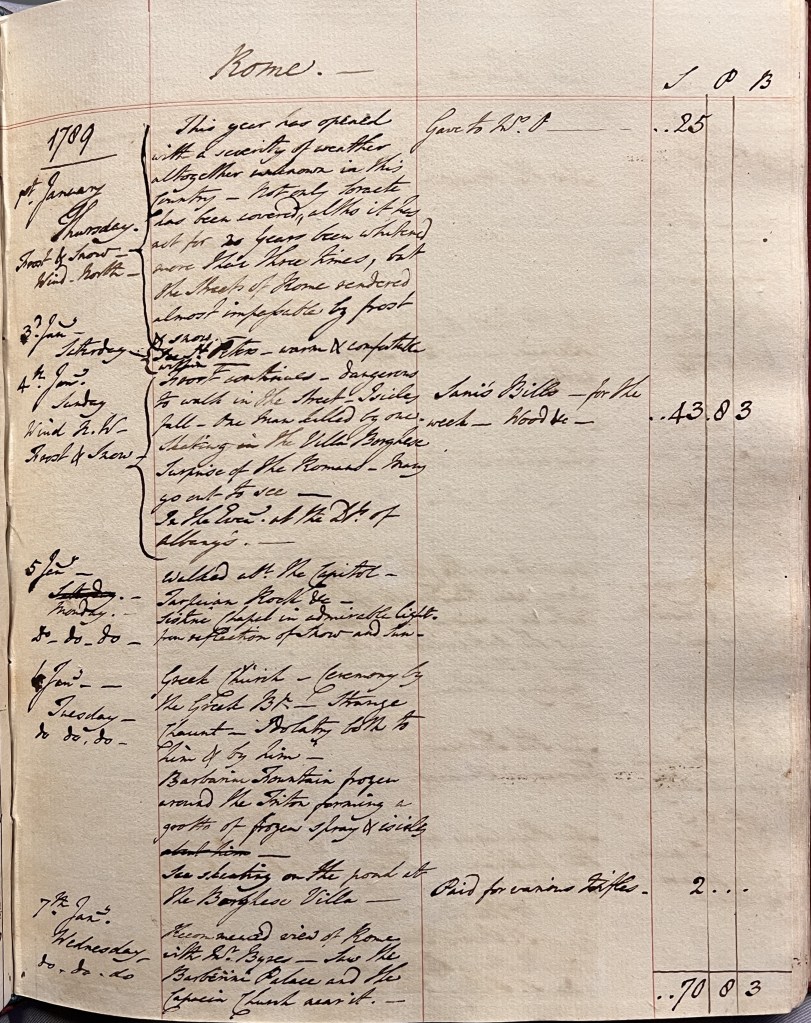 Rome. —
S P B
1789
1st. January
Thursday.
Frost & Snow —
Wind-North —
This year has opened
with a severity of weather
altogether unknown in this
Country — Not only Soracte
has been covered, altho it has
not for 20 Years been whitened
more than three times, but
the Streets of Rome rendered
almost impassable by frost
& snow.
Gave to Mr. P — ..25
3d. Jany —
Saturday —
See St. Peters — warm & comfortable
within
4th. Jany.
Sunday
Wind N.W —
Frost & Snow —
Frost continues — dangerous
to walk in the Street — Isicles
fall — One man killed by one.
Skating in the Villa Borghese
Surprise of the Romans — Many
go out to see —
In the Eveng. at the Dss. of
Albany's. —
Sani's Bills — for the
week — Wood &c — ..43.83
5 Jany —
Saturday. —
Monday. —
Do - do - do —
Walked abt. the Capitol —
Tarpeian Rock &c —
Sistine Chapel in admirable light
from reflection of Snow and Sun —
6 Jany — —
Tuesday —
do do. do —
Greek Church — Ceremony by
the Greek Bp. — Strange
Chaunt — Idolatry both to
him & by him —
Barbarini Fountain frozen
around the Triton forming a
grotto of frozen spray & isicles
about him —
See skeating on the pond at
the Borghese Villa —
Paid for various trifles. 2...
7th. Jany.
Wednesday —
do - do - do
Recommenced view of Rome
with Mr. Byres — Saw the
Barberini Palace and the
Capucin Church near it. —
..70 8 3